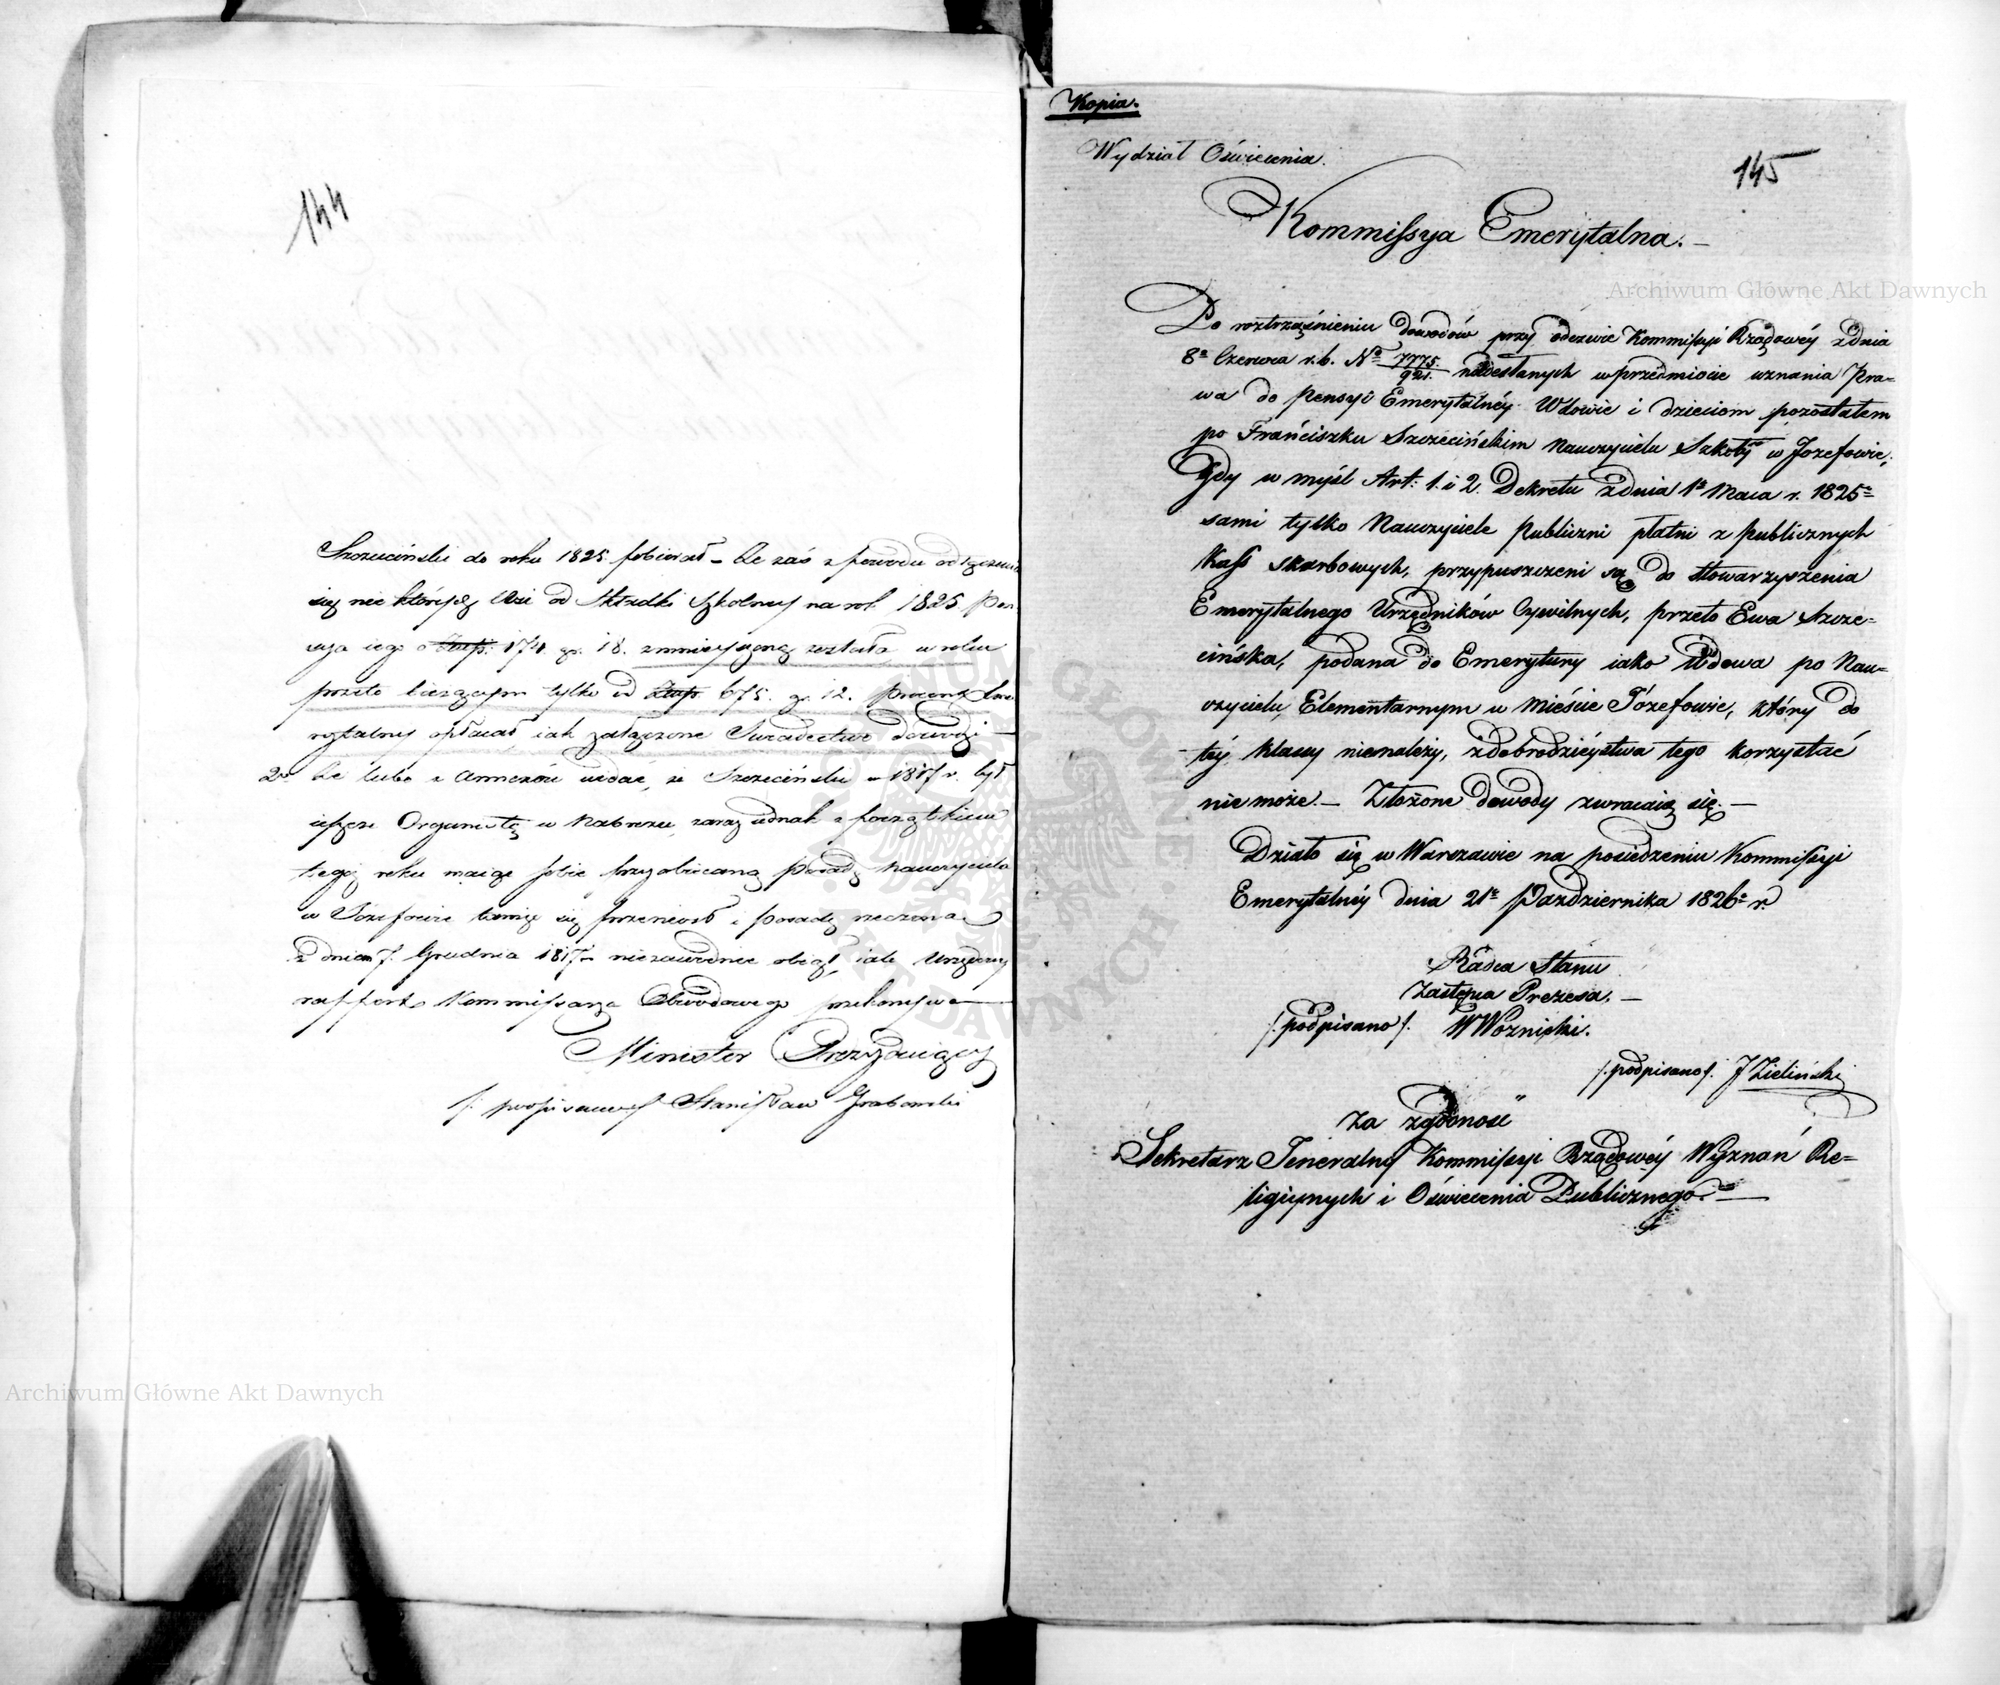 144
Szczeciński do roku 1825 pobierał – Że zaś z powodu odłączenia
się niektórych Wsi od Składki Szkolney na rok 1825 Pen-
sya iego o Złłp. 174 gr. 18. zmnieyszoną została, w roku
przeto bieżącym tylko od Złłp 675. gr. 12. procent Eme-
rytalny opłacał, iak załączone Świadectwo dowodzi –
2re Że lubo z Annexów widać, że Szczeciński w 1817 r. był
ieszcze Organistą w Nabrożu, zaraz iednak z początkiem
tego roku maiąc sobie przyobiecaną Posadę Nauczyciela
w Józefowie tamże się przeniosł i posadę rzeczoną
z dniem 7. Grudnia 1817 niezawodnie obiął, iak Urzędowy
rapport Kommissarza Obwodowego przekonywa
Minister Prezyduiący
/: podpisano :/ Stanisław Grabowski
Kopia.
Wydział Oświecenia.
145
Kommissya Emerytalna. –
Po roztrząśnieniu dowodów przy odezwie Kommissyi Rządowéy z dnia
8o Czerwca r. b. No 7775/921. nadesłanych w przedmiocie uznania Pra-
wa do Pensyi Emerytalnéy Wdowie i dzieciom pozostałem
po Franciszku Szczecińskim Nauczycielu Szkoły w Jozefowie,
Gdy w myśl Art: 1. i 2. Dekretu z dnia 1o Maia r. 1825o
sami tylko Nauczyciele Publiczni płatni z publicznych
Kass skarbowych, przypuszczeni są do stowarzyszenia
Emerytalnego Urzędników Cywilnych, przeto Ewa Szcze-
cińska, podana do Emerytury iako Wdowa po Nau-
czycielu Elementarnym w Mieście Józefowie, który do
téy klassy nienależy, z dobrodzieystwa tego korzystać
nie może. – Złożone dowody zwracaią się. –
Działo się w Warszawie na posiedzeniu Kommissyi
Emerytalnéy dnia 21o Października 1826o r.
Radca Stanu
Zastępca Prezesa. –
/: podpisano :/ W Woznicki.
/: podpisano :/ J Zieliński
Za zgodność
Sekretarz Jeneralny Kommissyi Rządowéy Wyznań Re-
ligiynych i Oświecenia Publicznego. –
Archiwum Główne Akt Dawnych
Archiwum Główne Akt Dawnych
ARCHIWUM GŁÓWNE AKT DAWNYCH